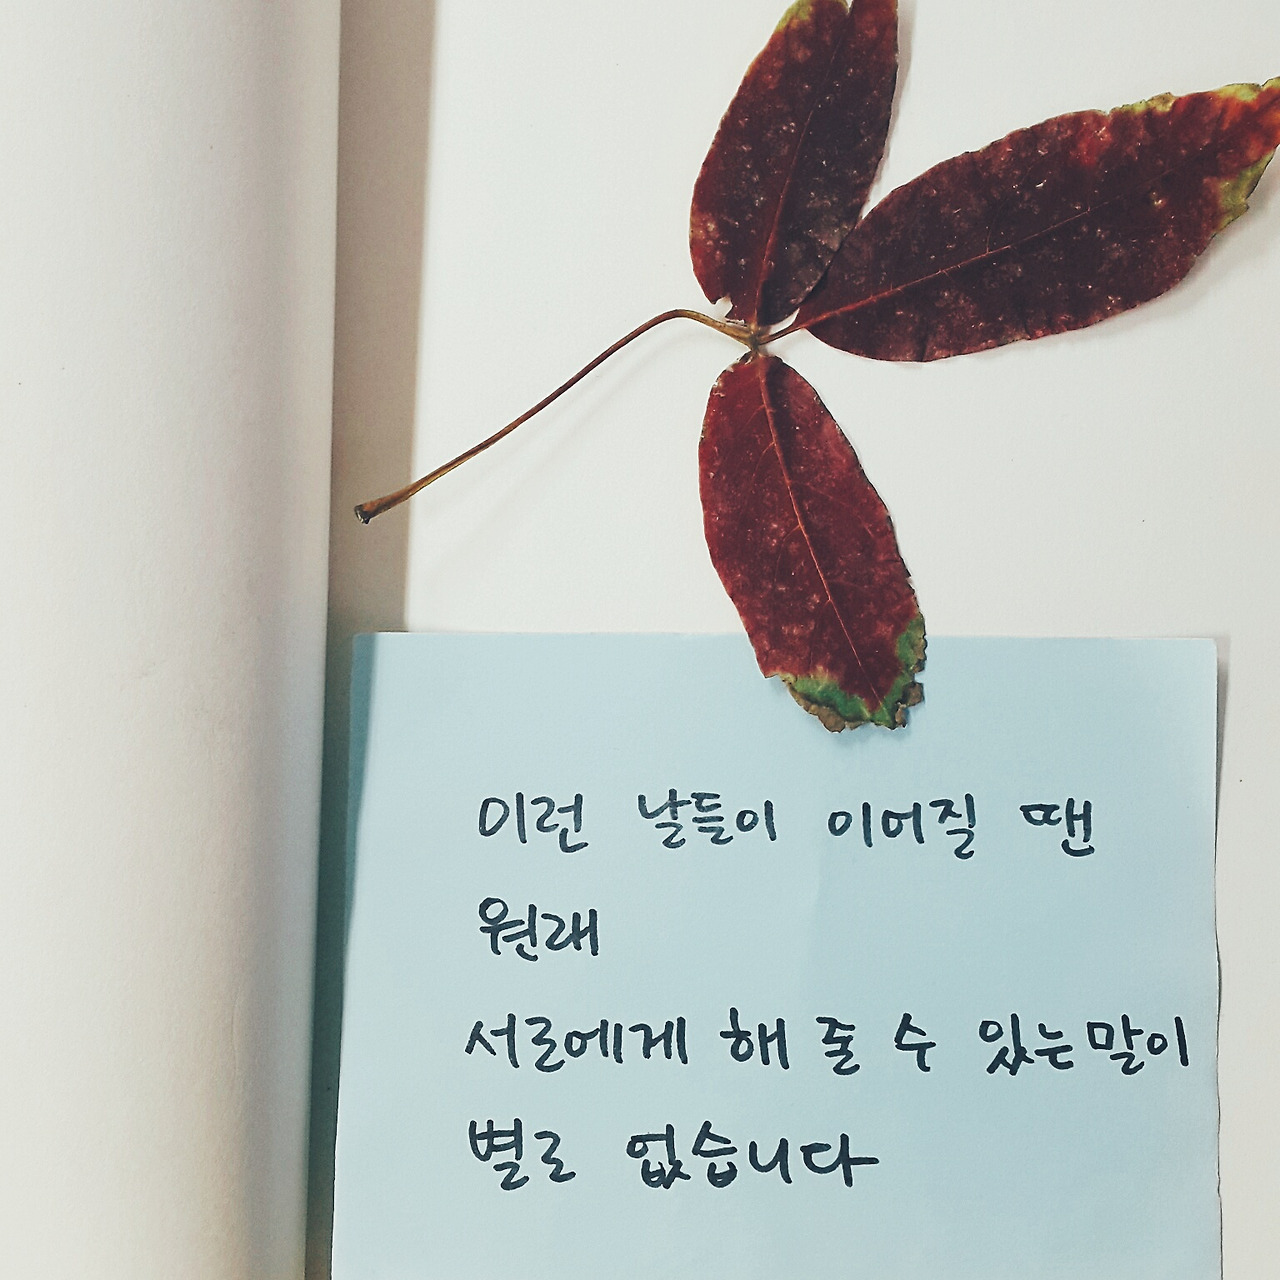 이런 날들이 이어질 땐
원래
서로에게 해 줄 수 있는 말이
별로 없습니다